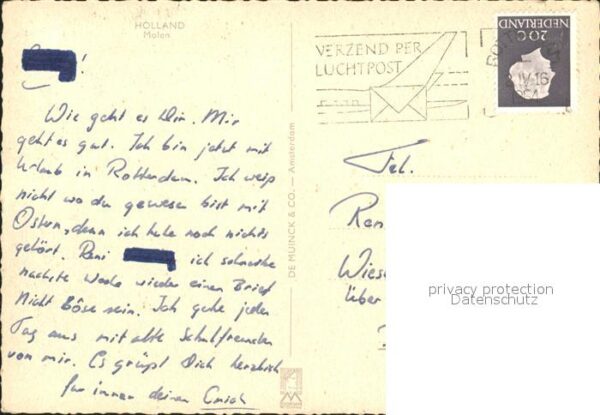 HOLLAND
Molen
VERZEND PER
LUCHTPOST
NEDERLAND
20 C
IV-16
Wie geht es Dir. Mir
geht es gut. Ich bin jetzt mit
Urlaub in Rotterdam. Ich weiß
nicht wo du gewesen bist mit
Ostern, denn ich habe noch nichts
gehört. Reni ich schreibe
nachste Woche wieder einen Brief
Nicht Böse sein. Ich gehe jeden
Tag aus mit alte Schulfreunden
von mir. Es grüßt Dich herzlich
für immer deinen
DE MUINCK & CO. — Amsterdam
Fel.
Ren
Wies
über
privacy protection
Datenschutz